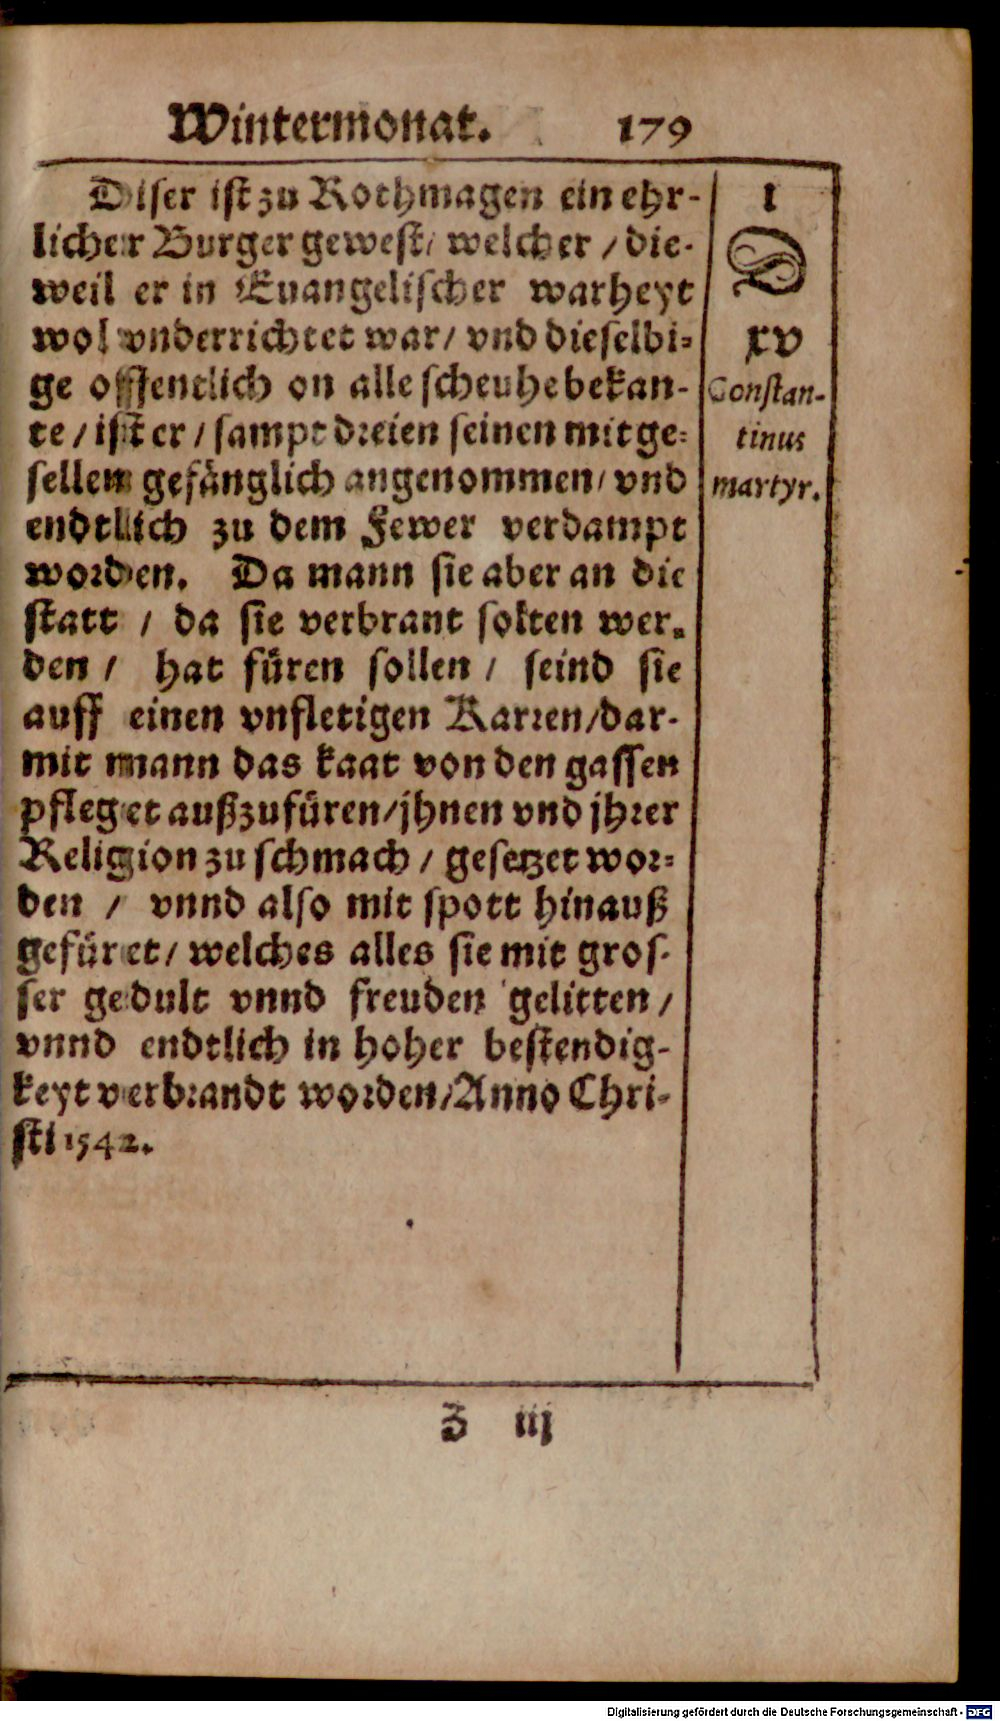 Wintermonat. 179
Diser ist zu Rothmagen ein ehr-
licher Burger gewest / welcher / die-
weil er in Euangelischer warheyt
wol vnderrichtet war / vnd dieselbi-
ge offentlich on alle scheuhe bekan-
te / ist er / sampt dreien seinen mitge-
sellen gefänglich angenommen / vnd
endtlich zu dem Fewer verdampt
worden. Da mann sie aber an die
statt / da sie verbrant solten wer-
den / hat füren sollen / seind sie
auff einen vnfletigen Karren / dar-
mit mann das kaat von den gassen
pfleget außzufüren / jhnen vnd jhrer
Religion zu schmach / gesetzet wor-
den / vnnd also mit spott hinauß
gefüret / welches alles sie mit gros-
ser gedult vnnd freuden gelitten /
vnnd endtlich in hoher bestendig-
keyt verbrandt worden / Anno Chri-
sti 1542.
1
D
xv
Constan-
tinus
martyr.
Z iij
Digitalisierung gefördert durch die Deutsche Forschungsgemeinschaft - DFG